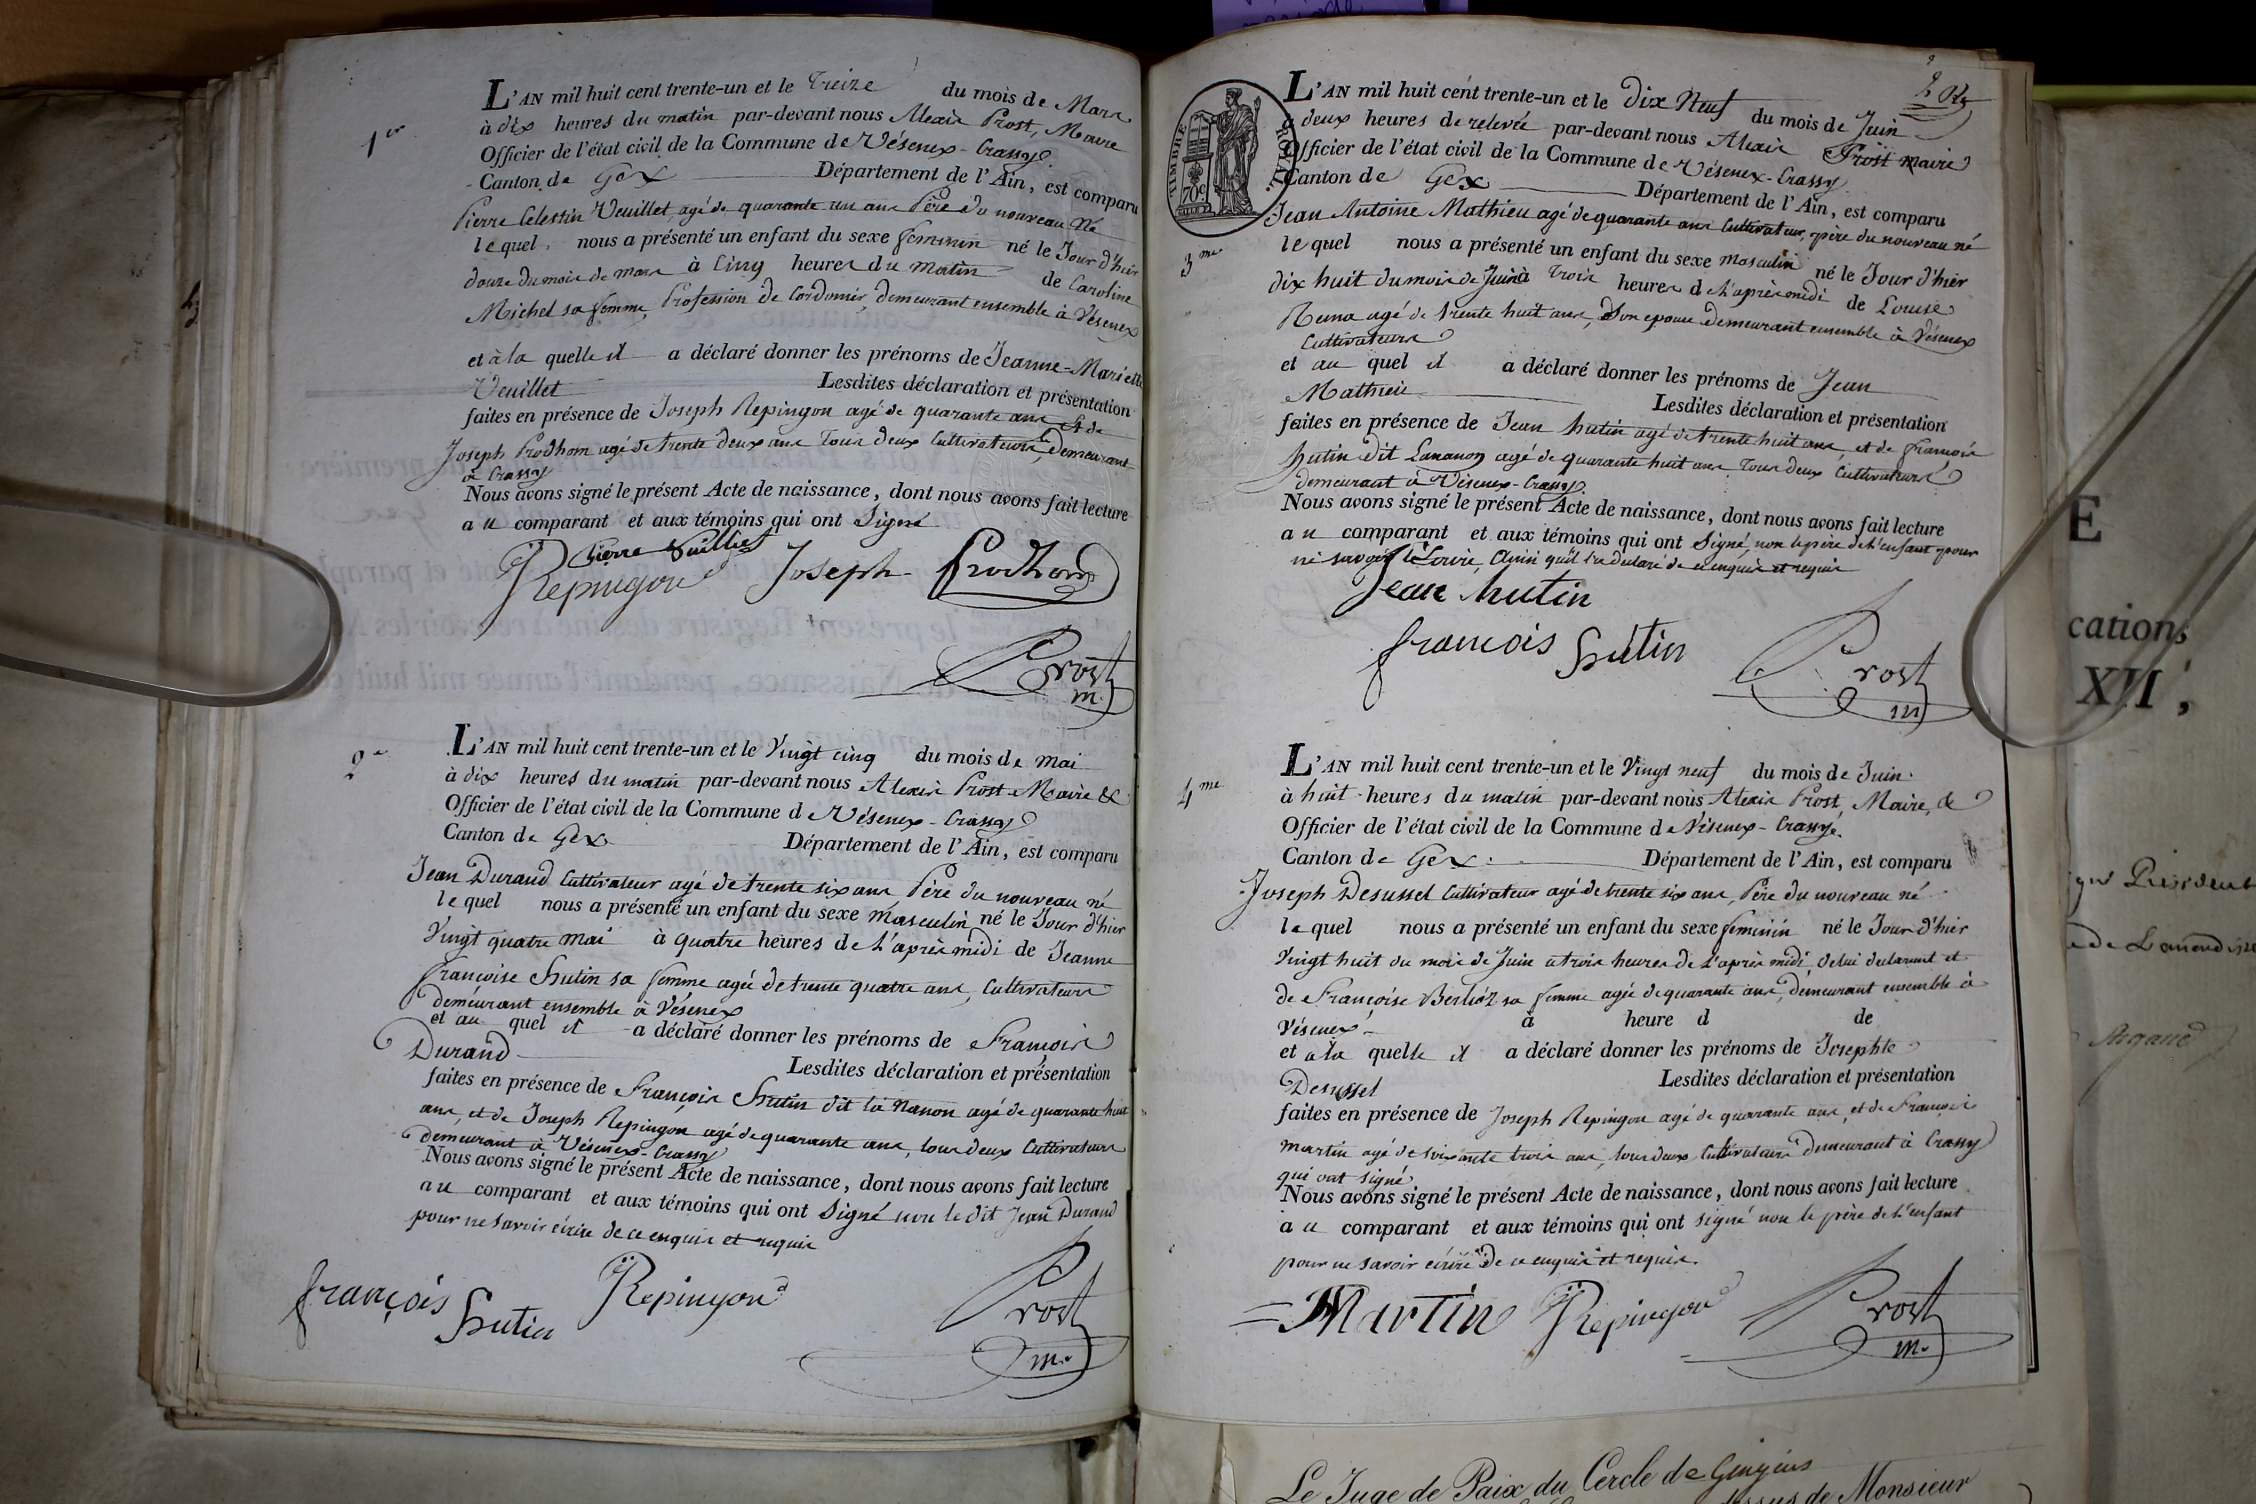 1er
L'AN mil huit cent trente-un et le Treize du mois de Mars
à dix heures du matin par-devant nous Alexis Prost, Maire
Officier de l'état civil de la Commune de Vésenex-Crassy
Canton de Gex Département de l'Ain, est comparu
Pierre Celestin Veuillet, agé de quarante un ans Père du nouveau né
lequel nous a présenté un enfant du sexe feminin né le Jour d'hier
douze du mois de mars à Cinq heures du matin de Caroline
Michel sa femme Profession de Cordonier, demeurant ensemble à Vésenex
et à la quelle il a déclaré donner les prénoms de Jeanne-Mariette
Veuillet Lesdites déclaration et présentation
faites en présence de Joseph Repingon agé de quarante ans et de
Joseph Prodhom agé de trente deux ans Tous deux Cultivateurs, demeurant
à Crassy
Nous avons signé le présent Acte de naissance, dont nous avons fait lecture
au comparant et aux témoins qui ont Signé
Pierre Vuillet
Repingon Joseph Prodhom
Prost
m.
2e
L'AN mil huit cent trente-un et le Vingt cinq du mois de mai
à dix heures du matin par-devant nous Alexis Prost Maire &
Officier de l'état civil de la Commune de Vésenex-Crassy
Canton de Gex Département de l'Ain, est comparu
Jean Durand Cultivateur agé de trente six ans Père du nouveau né
lequel nous a présenté un enfant du sexe masculin né le Jour d'hier
Vingt quatre mai à quatre heures de l'après midi de Jeanne
françoise hutin sa femme agée de trente quatre ans, Cultivateurs
demeurant ensemble à Vésenex
et au quel il a déclaré donner les prénoms de François
Durand Lesdites déclaration et présentation
faites en présence de François hutin dit la Nanon agé de quarante huit
ans, et de Joseph Repingon agé de quarante ans, tous deux Cultivateurs
demeurant à Vésenex-Crassy
Nous avons signé le présent Acte de naissance, dont nous avons fait lecture
au comparant et aux témoins qui ont Signé non le dit Jean Durand
pour ne savoir écrire de ce enquis et requis
françois hutin Repingon
Prost
m.
L'AN mil huit cent trente-un et le dix Neuf du mois de Juin
à deux heures de relevée par-devant nous Alexis Prost maire
Officier de l'état civil de la Commune de Vésenex-Crassy
Canton de Gex Département de l'Ain, est comparu
TIMBRE ROYAL
70c
Jean Antoine Mathieu agé de quarante ans Cultivateur, père du nouveau né
3me
lequel nous a présenté un enfant du sexe masculin né le Jour d'hier
dix huit du mois de Juin à Trois heures de l'après midi de Louise
agé de trente huit ans, Son epouse demeurant ensemble à Vésenex
Cultivateurs
et au quel il a déclaré donner les prénoms de Jean
Mathieu Lesdites déclaration et présentation
faites en présence de Jean hutin agé de trente huit ans, et de françois
hutin dit Lananon agé de quarante huit ans Tous deux Cultivateurs
demeurant à Vésenex-Crassy
Nous avons signé le présent Acte de naissance, dont nous avons fait lecture
au comparant et aux témoins qui ont Signé, non le père de l'enfant pour
ne savoir écrire, Ainsi qu'il l'a declaré de ce enquis et requis
Jean hutin
françois hutin
Prost
m
4me
L'AN mil huit cent trente-un et le Vingt neuf du mois de Juin
à huit heures du matin par-devant nous Alexis Prost, Maire, &
Officier de l'état civil de la Commune de Vésenex-Crassy
Canton de Gex Département de l'Ain, est comparu
Joseph Desussel Cultivateur agé de trente six ans, Père du nouveau né
lequel nous a présenté un enfant du sexe feminin né le Jour d'hier
Vingt huit du mois de Juin a trois heures de l'après midi, de lui declarant et
de Françoise Berlioz sa femme agée de quarante ans, demeurant ensemble à
Vésenex à heure d de
et à la quelle il a déclaré donner les prénoms de Josephte
Desussel Lesdites déclaration et présentation
faites en présence de Joseph Repingon agé de quarante ans, et de François
martin agé de soixante trois ans, tous deux Cultivateurs demeurant à Crassy
qui ont signé
Nous avons signé le présent Acte de naissance, dont nous avons fait lecture
au comparant et aux témoins qui ont signé non le père de l'enfant
pour ne savoir écrire de ce enquis et requis.
Martin Repingon
Prost
m.
E
cations
XII,
Le Juge de Paix du Cercle de Gingins
de Monsieur